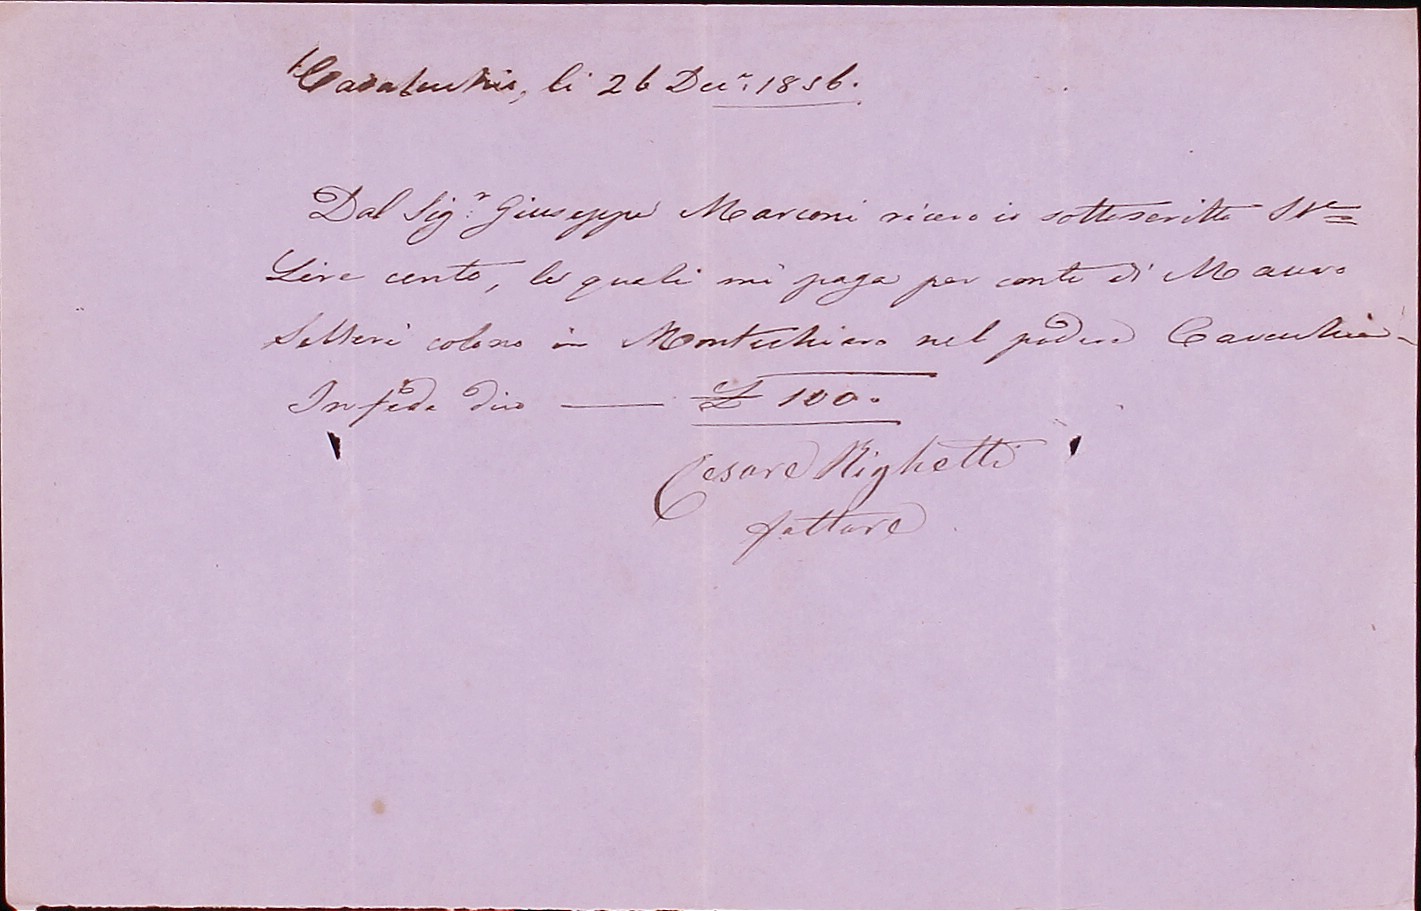 Casalecchio, li 26 Dec.r 1856.
Dal Sig.r Giuseppe Marconi ricevo io sottoscritto
Lire cento, le quali mi paga per conto di Mauro
colono in Montechiaro nel podere
In fede dico — £ 100.
Cesare Righetti
fattore